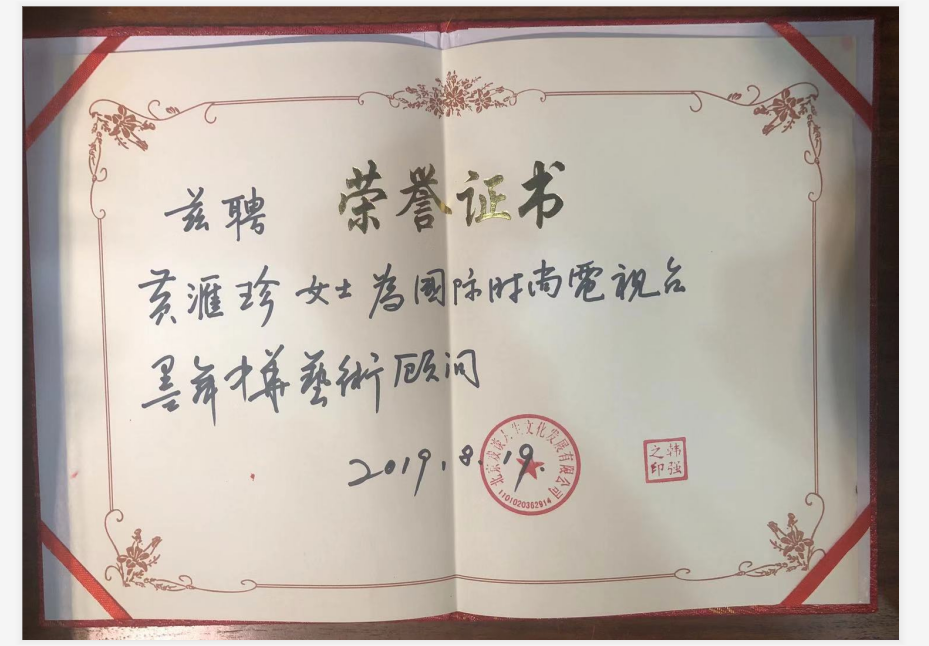 荣誉证书
兹聘
黄滙珍女士為國际时尚電视台
墨舞才華藝術顾问
2019.8.19.
北京 人生文化发展有限公司
1101020362914
韩强之印